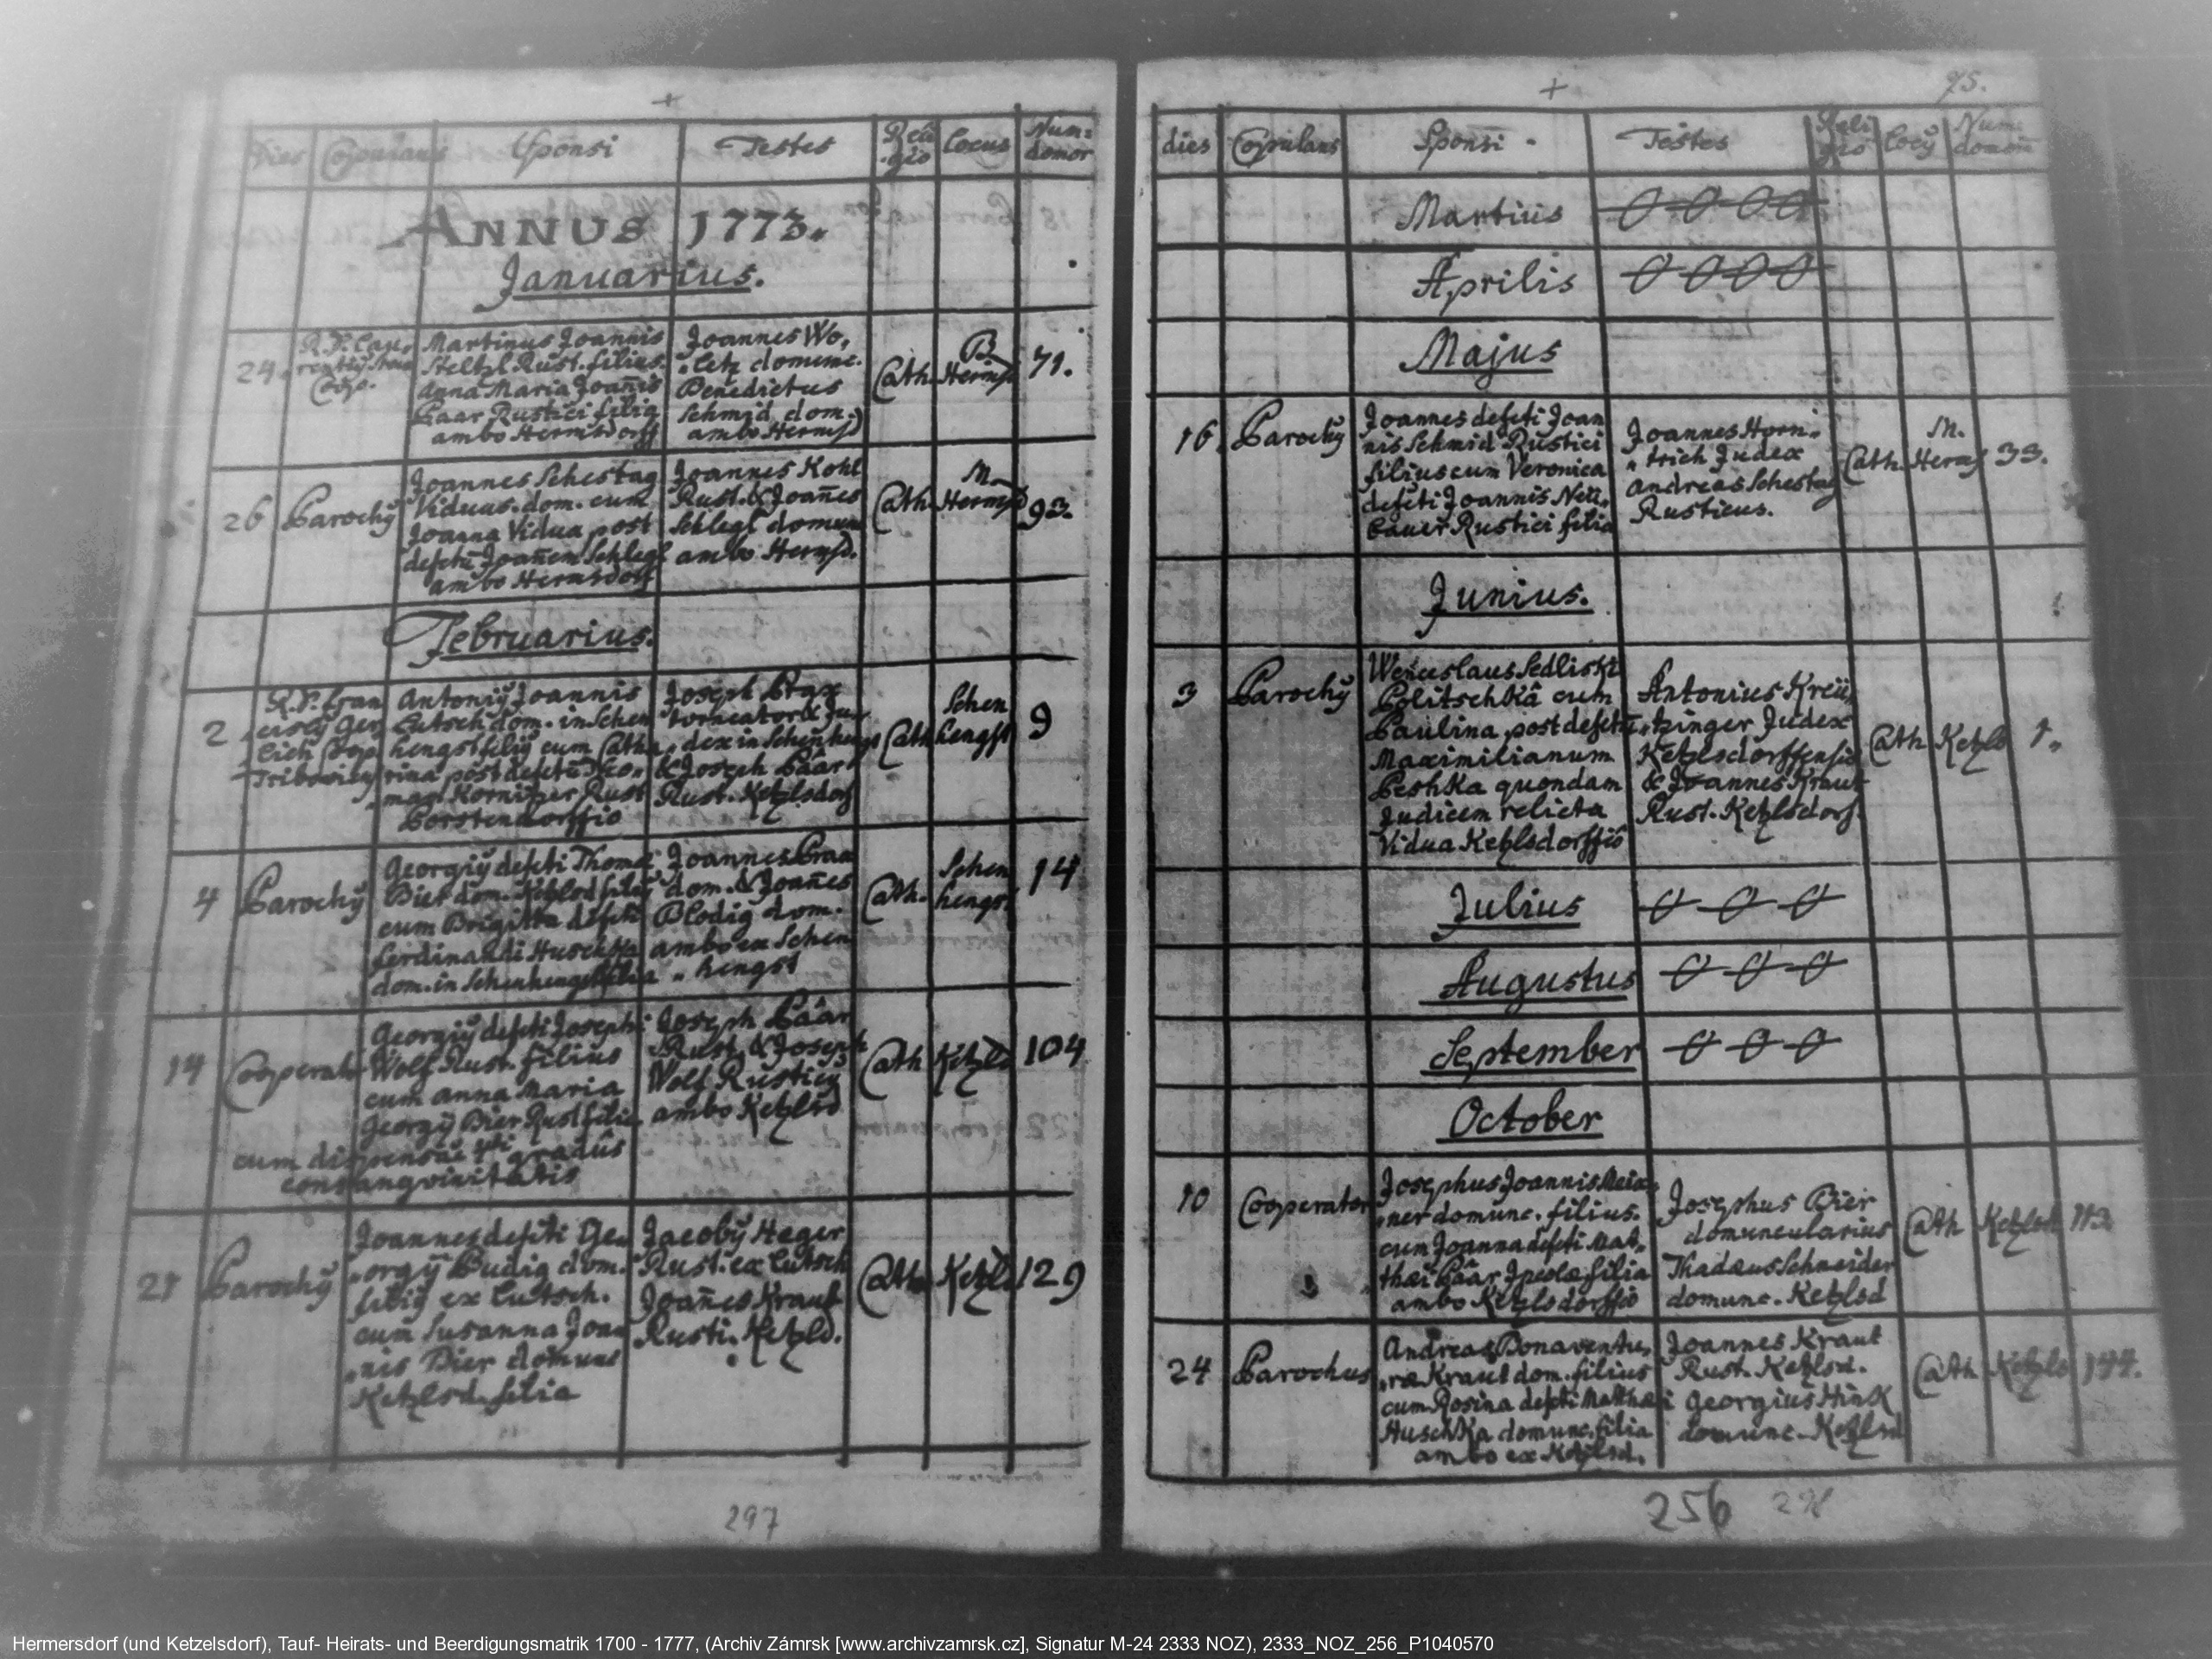 +
Dies Copulans Sponsi Testes Religio Locus Num: domor
ANNUS 1773.
Januarius.
24.
Copo.
Martinus Joannis
Steltzl Rust. filius.
Anna Maria Joañis
Paar Rustici filia
ambo Hermsdorff
Joannes Wo,
„letz domunc.
Benedictus
Schmid dom.
ambo Hermsd
Cath.
B.
Hermsd
71.
26
Parochꝰ
Joannes Schestag
Viduus. dom. cum
Joanna Vidua post
defctũ Joañem Schlegl
ambo Hermsdorf
Joannes Kohl
Rust. & Joañes
Schlegl domun
ambo Hermsd.
Cath.
M.
Hermsd
93.
Februarius.
2
R.P. Fran
Antoniꝰ Joannis
Lutsch dom. in Schen
hengst filiꝰ cum Catha
rina post defctũ Tho„
„mam Kornitzer Rust
Porstendorffio
Joseph Prax
torneator & Ju„
„dex in Schenhengst
& Joseph Paar
Rust. Ketzlsdorf
Cath
Schen
hengst
9
4
Parochꝰ
Georgiꝰ defcti Thomæ
Bier dom. Ketzlsd filiꝰ
cum Brigitta defcti
Ferdinandi Huschka
dom. in Schenhengst filia
Joannes Praa
dom. & Joañes
Blodig dom.
ambo ex Schen
„hengst
Cath.
Schen
hengs.
14
14
Cooperat
Georgiꝰ defcti Josephi
Wolf Rust. filius
cum Anna Maria
Georgÿ Bier Rust filia
cum dispensãe 4ti gradûs
consangvinitatis
Joseph Pâar
Rust. & Joseph
Wolf Rusticꝰ
ambo Ketzlsd
Cath
Ketzls
104
21
Parochꝰ
Joannes defcti Ge„
„orgÿ Budig dom.
filiꝰ ex Lutsch.
cum Susanna Joan
„nis Bier domunc
Ketzlsd. filia
Jacobꝰ Heger
Rust. ex Lutsch
Joañes Kraut
Rusti. Ketzld.
Cath
Ketzls
129
297
+
75.
dies Copulans Sponsi Testes Religio Locꝰ Num domorũ
Martius 0 0 0 0
Aprilis 0 0 0 0
Majus
16.
Parochꝰ
Joannes defcti Joan
nis Schmid Rustici
filius cum Veronica
defcti Joannis Neu„
bauer Rustici filia
Joannes Horn„
„trich Judex
Andreas Schestag
Rusticus.
Cath.
M.
Herms
33.
Junius.
3
Parochꝰ
Wenceslaus Sedliski
Politschkâ cum
Paulina, post defctũ
Maximilianum
Peshka quondam
Judicem relicta
Vidua Ketzlsdorffiô
Antonius Kreu„
„tzinger Judex
Ketzlsdorffensis
& Joannes Kraut
Rust. Ketzlsdorf.
Cath
Ketzls
1.
Julius 0 0 0
Augustus 0 0 0
September 0 0 0
October
10
Cooperator
Josephus Joannis Meix„
„ner domunc. filius.
cum Joanna defcti Mat„
„thæi Pâar filia
ambo Ketzlsdorffiô
Josephus Bier
domuncularius
Thadæus Schneider
domunc. Ketzlsd
Cath
Ketzlsd
113
24
Parochus
Andreas Bonaventu„
„ræ Kraut dom. filius
cum Rosina defcti Matthæi
Huschka domunc. filia
ambo ex Ketzlsd.
Joannes Kraut
Rust. Ketzlsd.
Georgius Hink
domunc. Ketzlsd
Cath
Ketzls
144.
256
Hermersdorf (und Ketzelsdorf), Tauf- Heirats- und Beerdigungsmatrik 1700 - 1777, (Archiv Zámrsk [www.archivzamrsk.cz], Signatur M-24 2333 NOZ), 2333_NOZ_256_P1040570